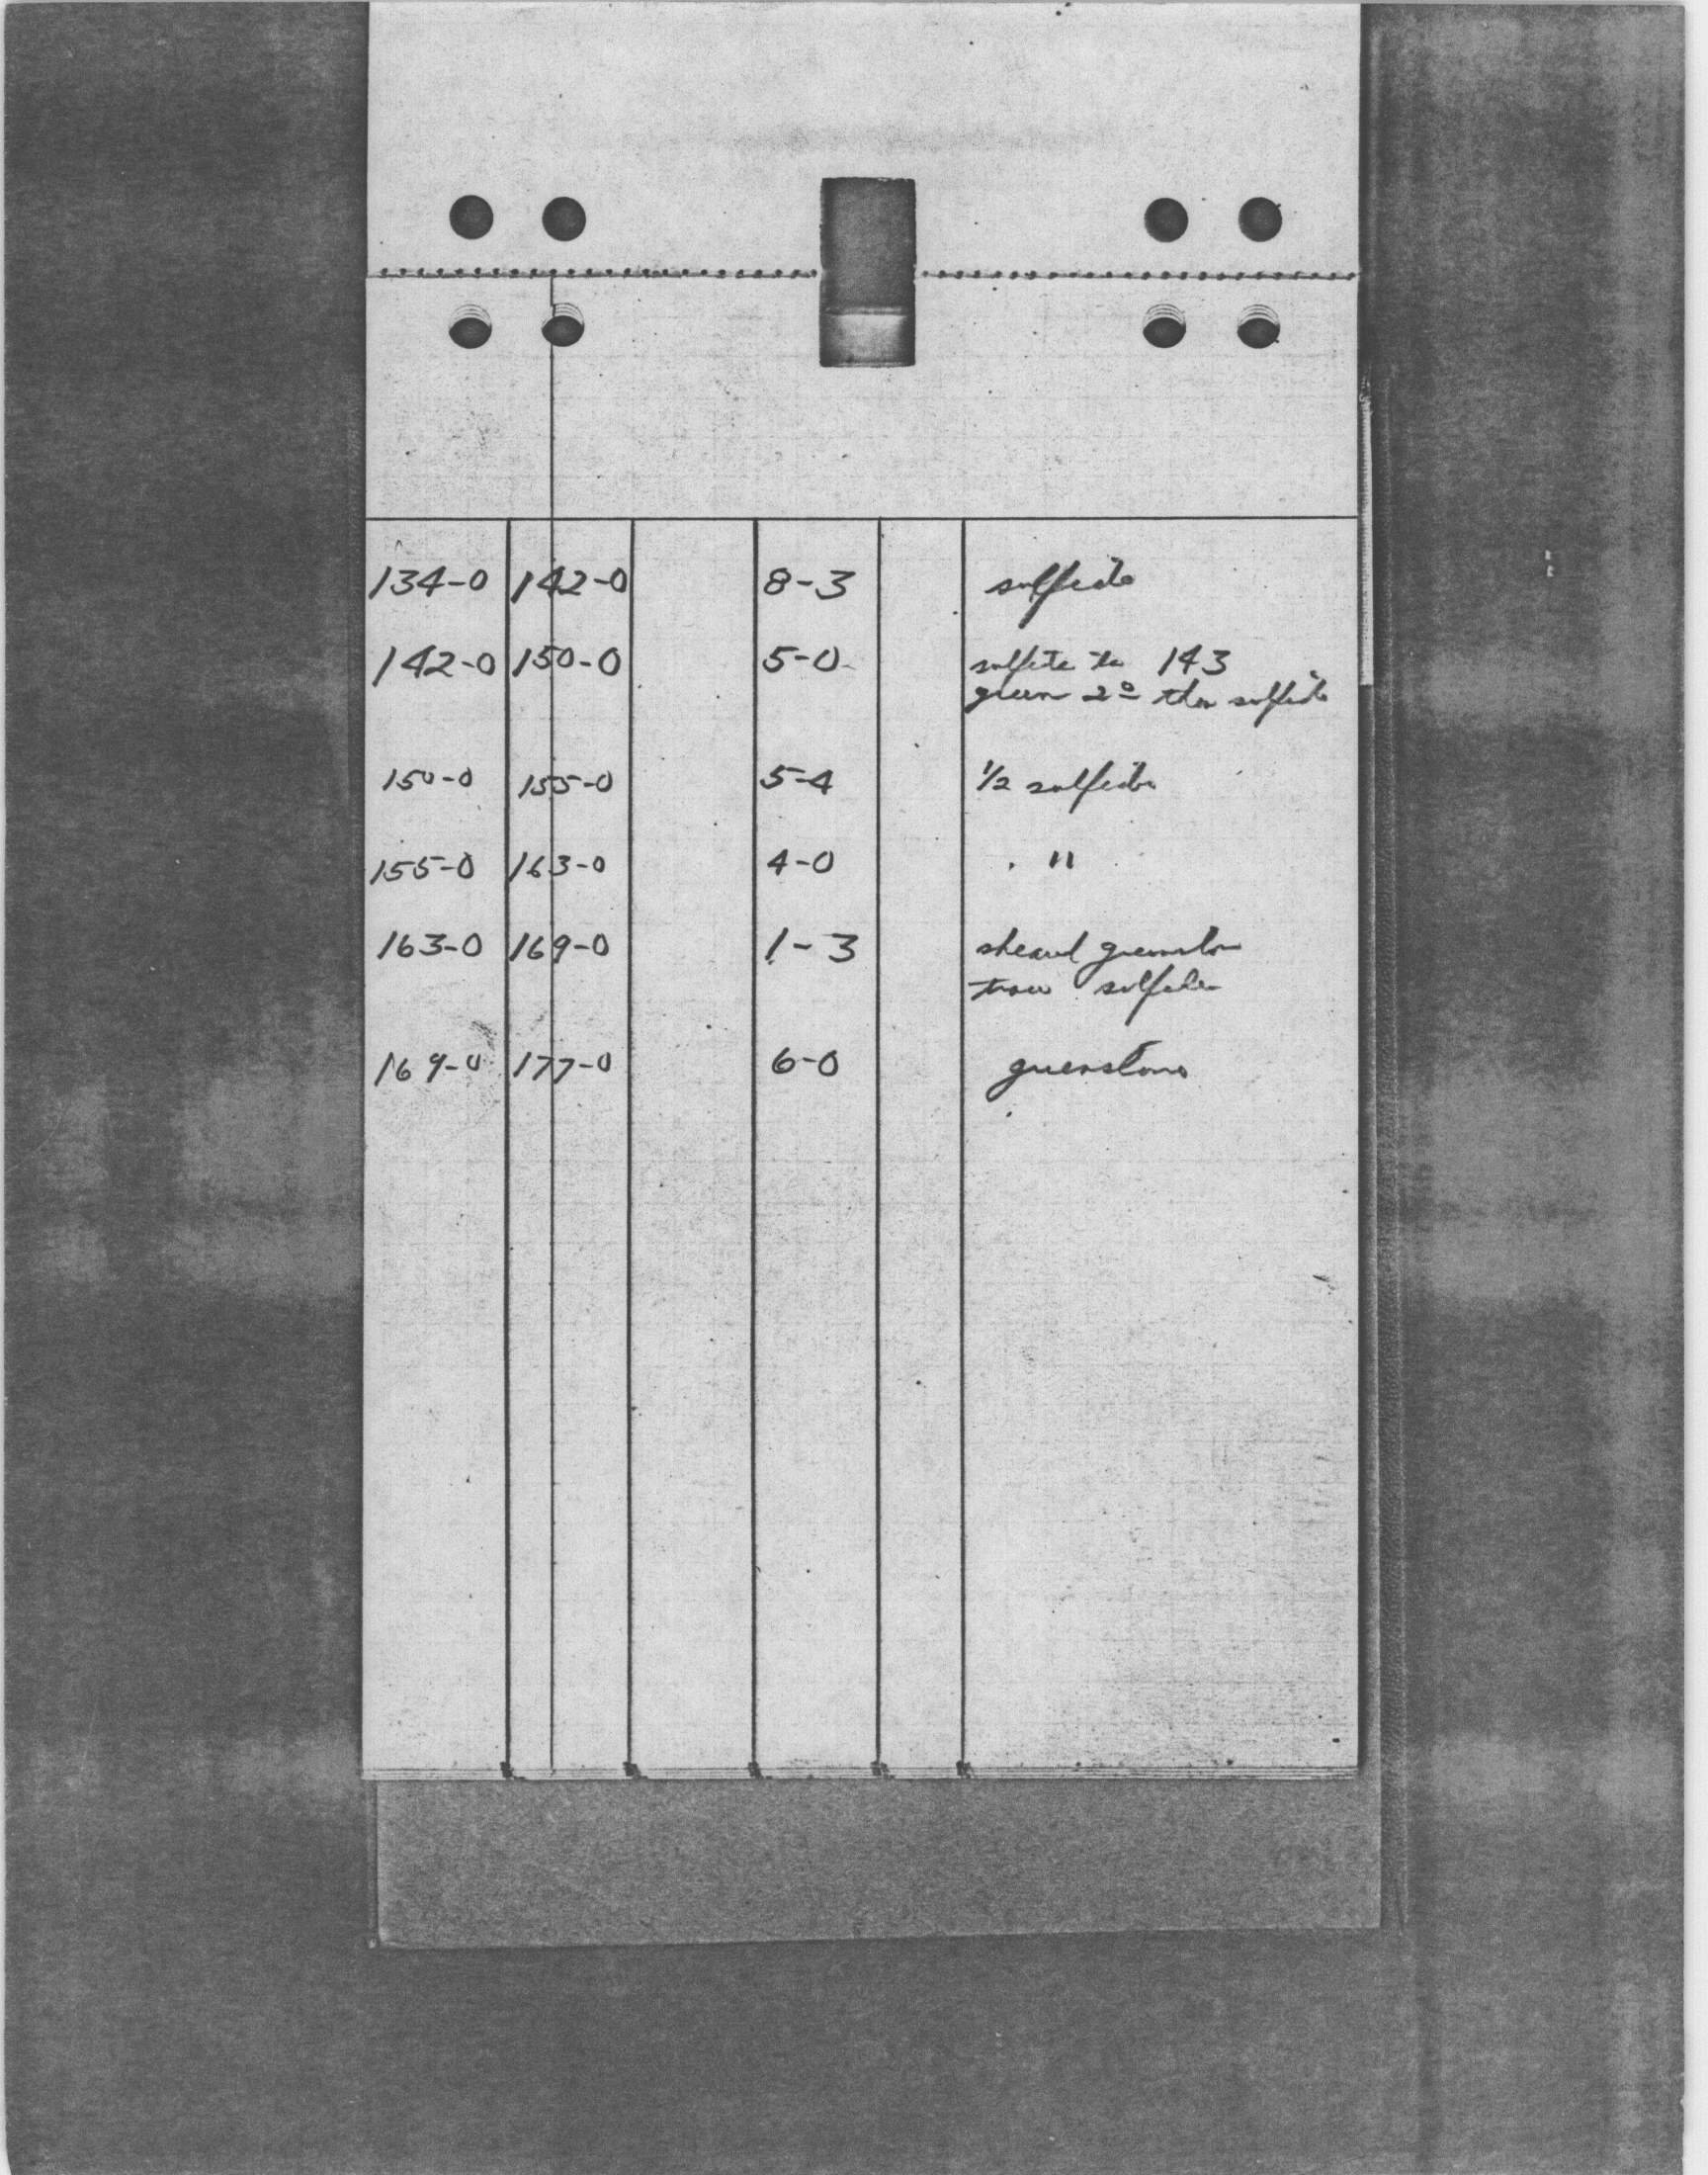 134-0 142-0 8-3 sulfide
142-0 150-0 5-0 sulfite to 143
green 2º then sulfide
150-0 155-0 5-4 1/2 sulfide
155-0 163-0 4-0 "
163-0 169-0 1-3 sheared greenstone
trace sulfides
169-0 177-0 6-0 greenstone